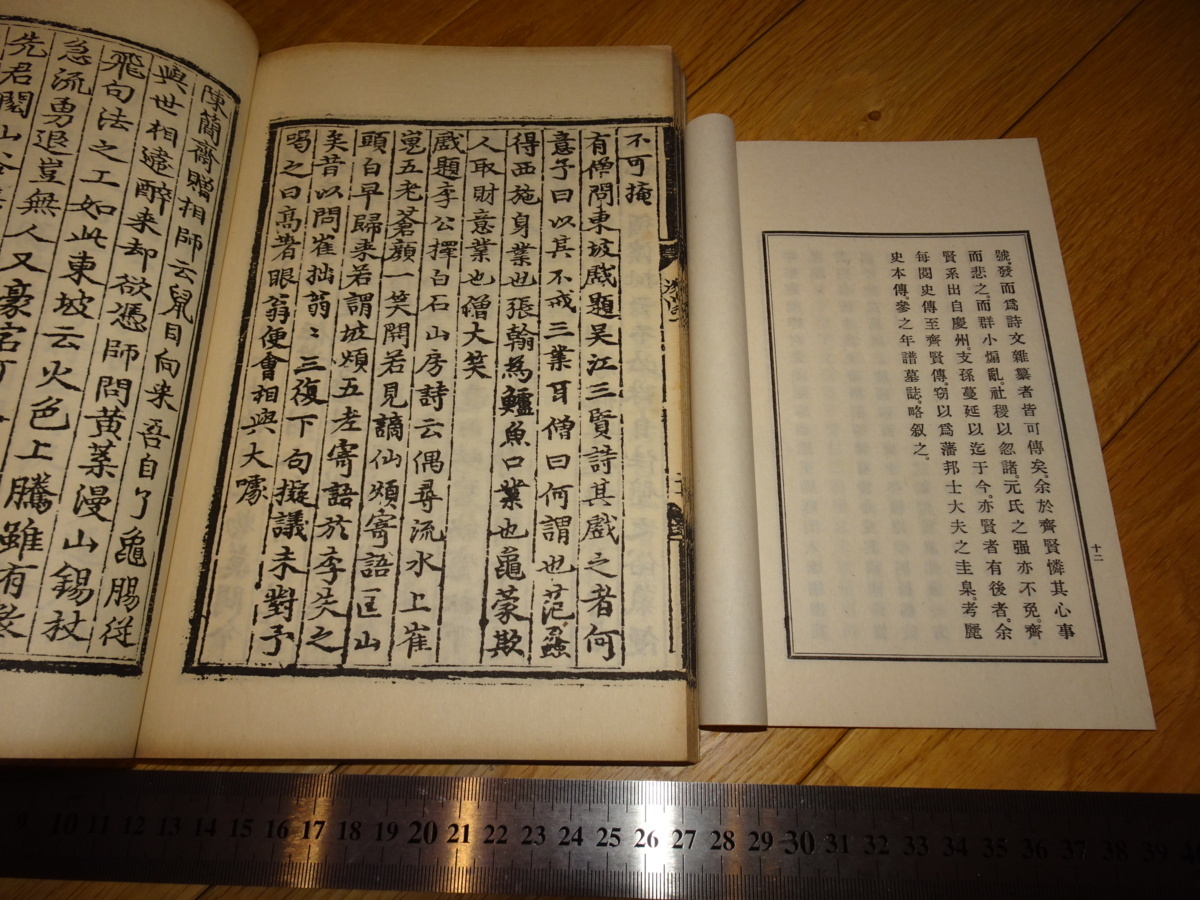 號。發而爲詩文雜纂者皆可傳矣余於齊賢憐其心事
而悲之而群小煽亂。社稷以忽諸。元氏之强亦不免。齊
賢系出自慶州。支孫蔓延以迄于今。亦賢者有後者。余
每閱史傳至齊賢傳。窃以爲藩邦士大夫之圭臬。考麗
史本傳。參之年譜墓誌。略叙之。
十二
不可掩
有僧問東坡戲題吴江三賢詩其戲之者何
意予曰以其不戒三業耳僧曰何謂也范蠡
得西施身業也張翰爲鱸魚口業也龜蒙欺
人取財意業也僧大笑
戲題李公擇白石山房詩云偶尋流水上崔
嵬五老蒼顔一笑開若見謫仙煩寄語匡山
頭白早歸来若謂坡煩五老寄語於李矣之
矣昔以問崔拙翁〻三復下句擬議未對予
喝之曰高著眼翁便會相與大噱
陳簡齋贈相師云鼠目向来吾自了龜腸従
與世相違醉来却欲憑師問黄葉漫山錫杖
飛句法之工如此東坡云火色上騰雖有
急流勇退豈無人又豪宕可
先君閲山谷
10 11 12 13 14 15 16 17 18 19 20 21 22 23 24 25 26 27 28 29 30 31 32 33 34 35 36 37 38 39